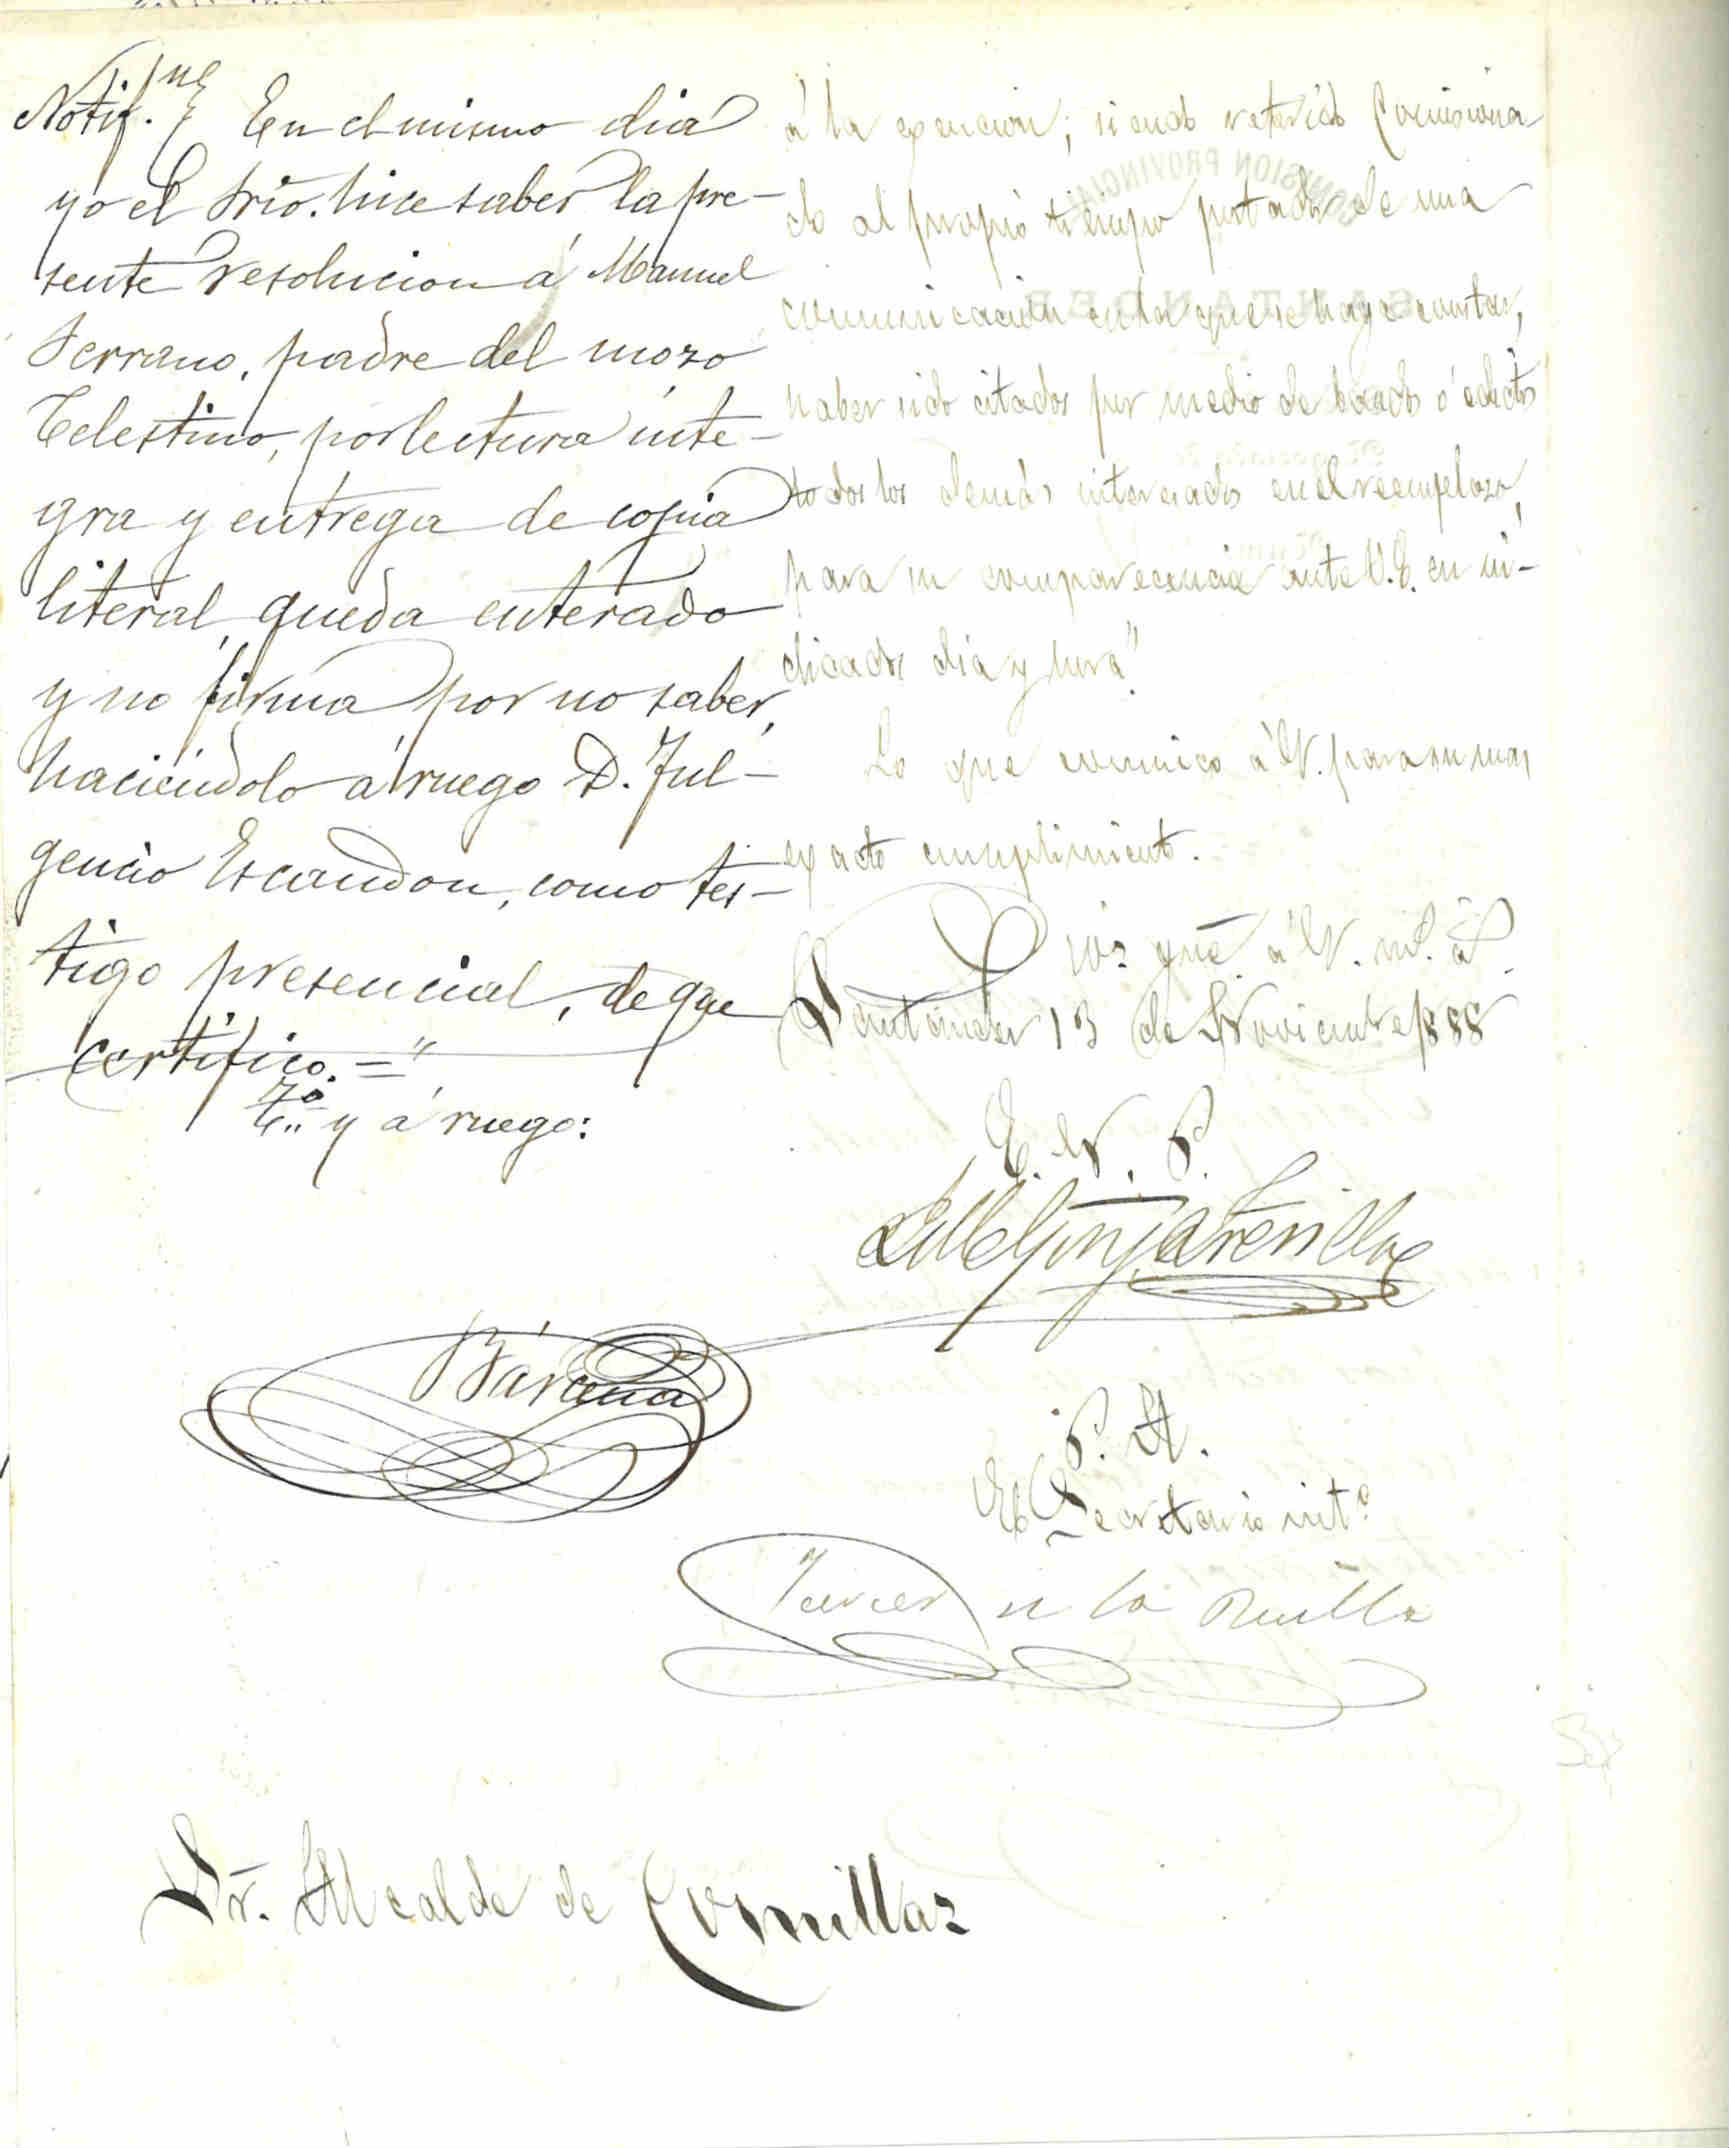 Notif.ne } En el mismo dia
yo el Srio. hice saber la pre-
sente resolucion á Manuel
Serrano, padre del mozo
Celestino, por lectura inte-
gra y entrega de copia
literal, queda enterado
y no firma por no saber,
haciéndolo á ruego D. Ful-
gencio Escandon, como tes-
tigo presencial, de que
certifico.="
T.º y á ruego:
Bárcena
á la exencion; siendo referido Comisiona
do al propio tiempo portador de una
comunicación en la que se haga constar,
haber sido citados por medio de bando ó edicto
todos los demás interesados en el reemplazo,
para su comparecencia ante V.E. en in-
dicados dia y hora"
Lo que comunico á V. para su mas
exacto cumplimiento.
Dios gue á V. ms. as.
Santander 13 de Noviembre 1888
E. V. P.
P. A.
El Secretario int.º
Sr. Alcalde de Comillas
COMISION PROVINCIAL
SANTANDER